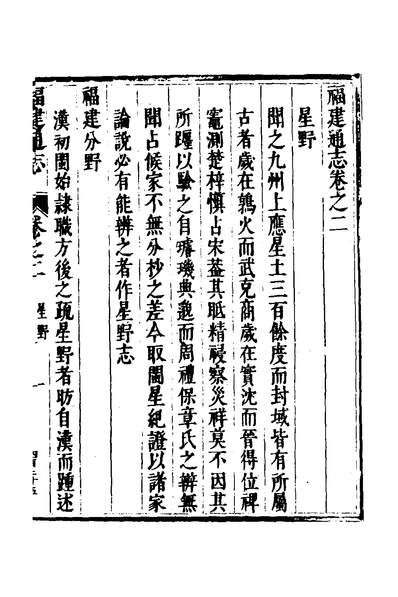 福建通志卷之二
星野
聞之九州上應星土三百餘度而封域皆有所屬
古者歲在鶉火而武克商歲在實沈而晉得位裨
竈測楚梓慎占宋葢其眡精祲察災祥莫不因其
所躔以驗之自璿璣典邈而周禮保章氏之辨無
聞占候家不無分杪之差今取閩星紀證以諸家
論說必有能辨之者作星野志
福建分野
漢初閩始隷職方後之疏星野者昉自漢而踵述
福建通志
卷之二
星野
一